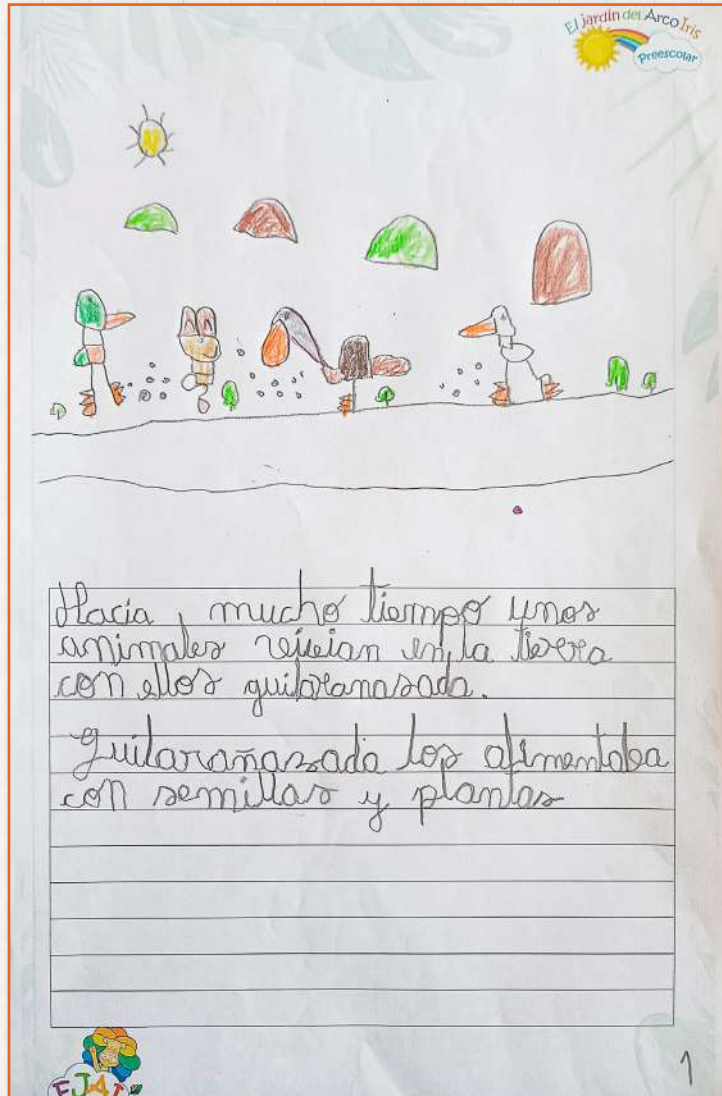 El jardín del Arco Iris
Preescolar
Hacia, mucho tiempo unos
animales vivian en la tierra
con ellos guitaranasada.
Guitarañasada los alimentaba
con semillas y plantas
EJAI
1